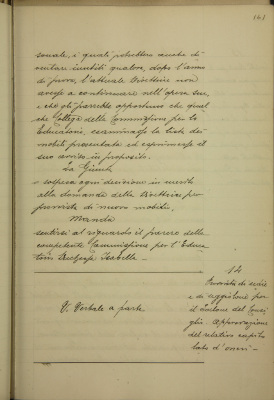 141
sonale, e quali potrebbero anche di-
ventare inutili qualora, dopo l'anno
di prova, l'attuale Direttrice non
avesse a continuare nell'opera sua,
e che gli parrebbe opportuno che qual
che Collega della Commissione per lo
Educatorio, esaminasse la lista dei
mobili presentata ed esprimesse il
suo avviso in proposito.
La Giunta
sospesa ogni decisione in merito
alla domanda della Direttrice per
provvista di nuovi mobili,
Manda
sentirsi al riguardo il parere della
competente Commissione per l'Educa
torio Duchessa Isabella -
V. Verbale a parte
14
Provvista di
e di per
il del Consi
glio. Approvazione
del relativo capito
lato d'oneri -